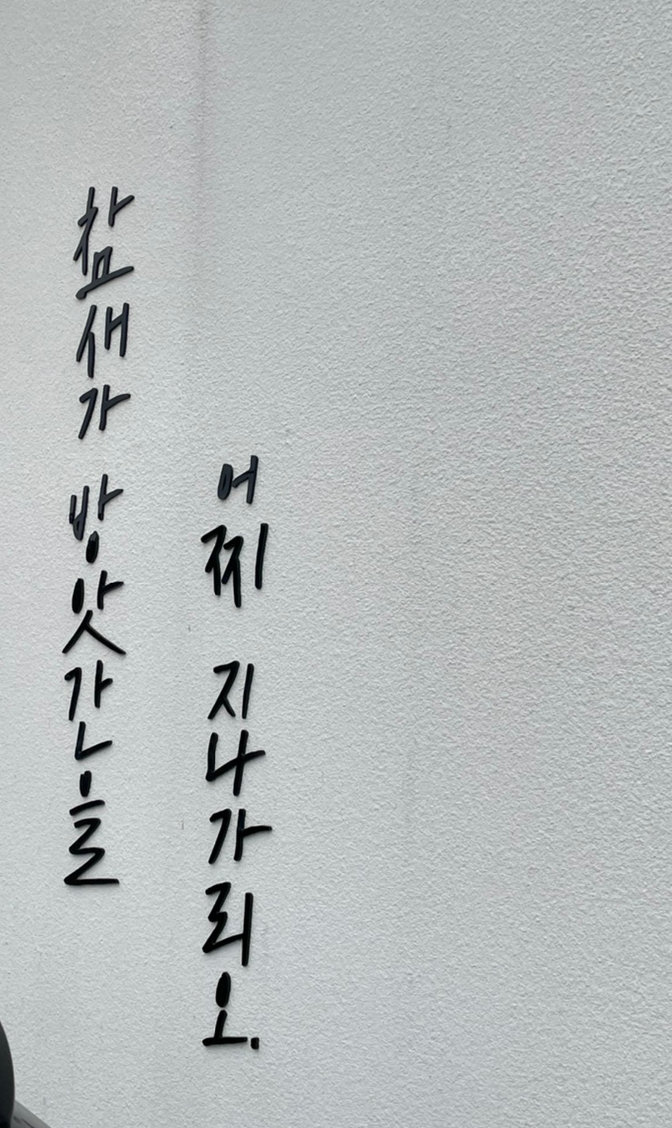 참새가 방앗간을
어찌 지나가리오.